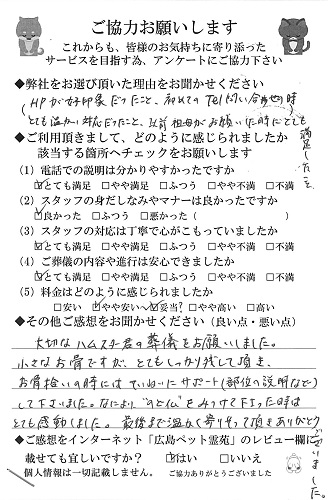 ご協力お願いします
これからも、皆様のお気持ちに寄り添った
サービスを目指す為、アンケートにご協力下さい
◆弊社をお選び頂いた理由をお聞かせください
(HPが好印象だったこと、初めてのTel問い合わせ時
とても温かい対応だったこと、以前祖母がお願いした時にとても
満足したこと
◆ご利用頂きまして、どのように感じられましたか
該当する箇所へチェックをお願いします
(1) 電話での説明は分かりやすかったですか
☑とても満足 □やや満足 □ふつう □やや不満 □不満
(2) スタッフの身だしなみやマナーは良かったですか
☑良かった □ふつう □悪かった ( )
(3) スタッフの対応は丁寧で心がこもっていましたか
☑とても満足 □やや満足 □ふつう □やや不満 □不満
(4) ご葬儀の内容や進行は安心できましたか
☑とても満足 □やや満足 □ふつう □やや不満 □不満
(5) 料金はどのように感じられましたか
□安い ☑やや安い ☑妥当? □やや高い □高い
◆その他ご感想をお聞かせください(良い点・悪い点)
大切なハムスター君の葬儀をお願いしました。
小さなお骨ですが、とてもしっかり残して頂き、
お骨拾いの時にはていねいにサポート(部位の説明など)
して下さいました。なにより"のど仏"をみつけて下さった時は
とても感動しました。最後まで温かく寄りそって頂きありがとう
ございました。
◆ご感想をインターネット「広島ペット霊苑」のレビュー欄に
載せても宜しいですか? ☑はい □いいえ
個人情報は一切記載しません。 ご協力ありがとうございました